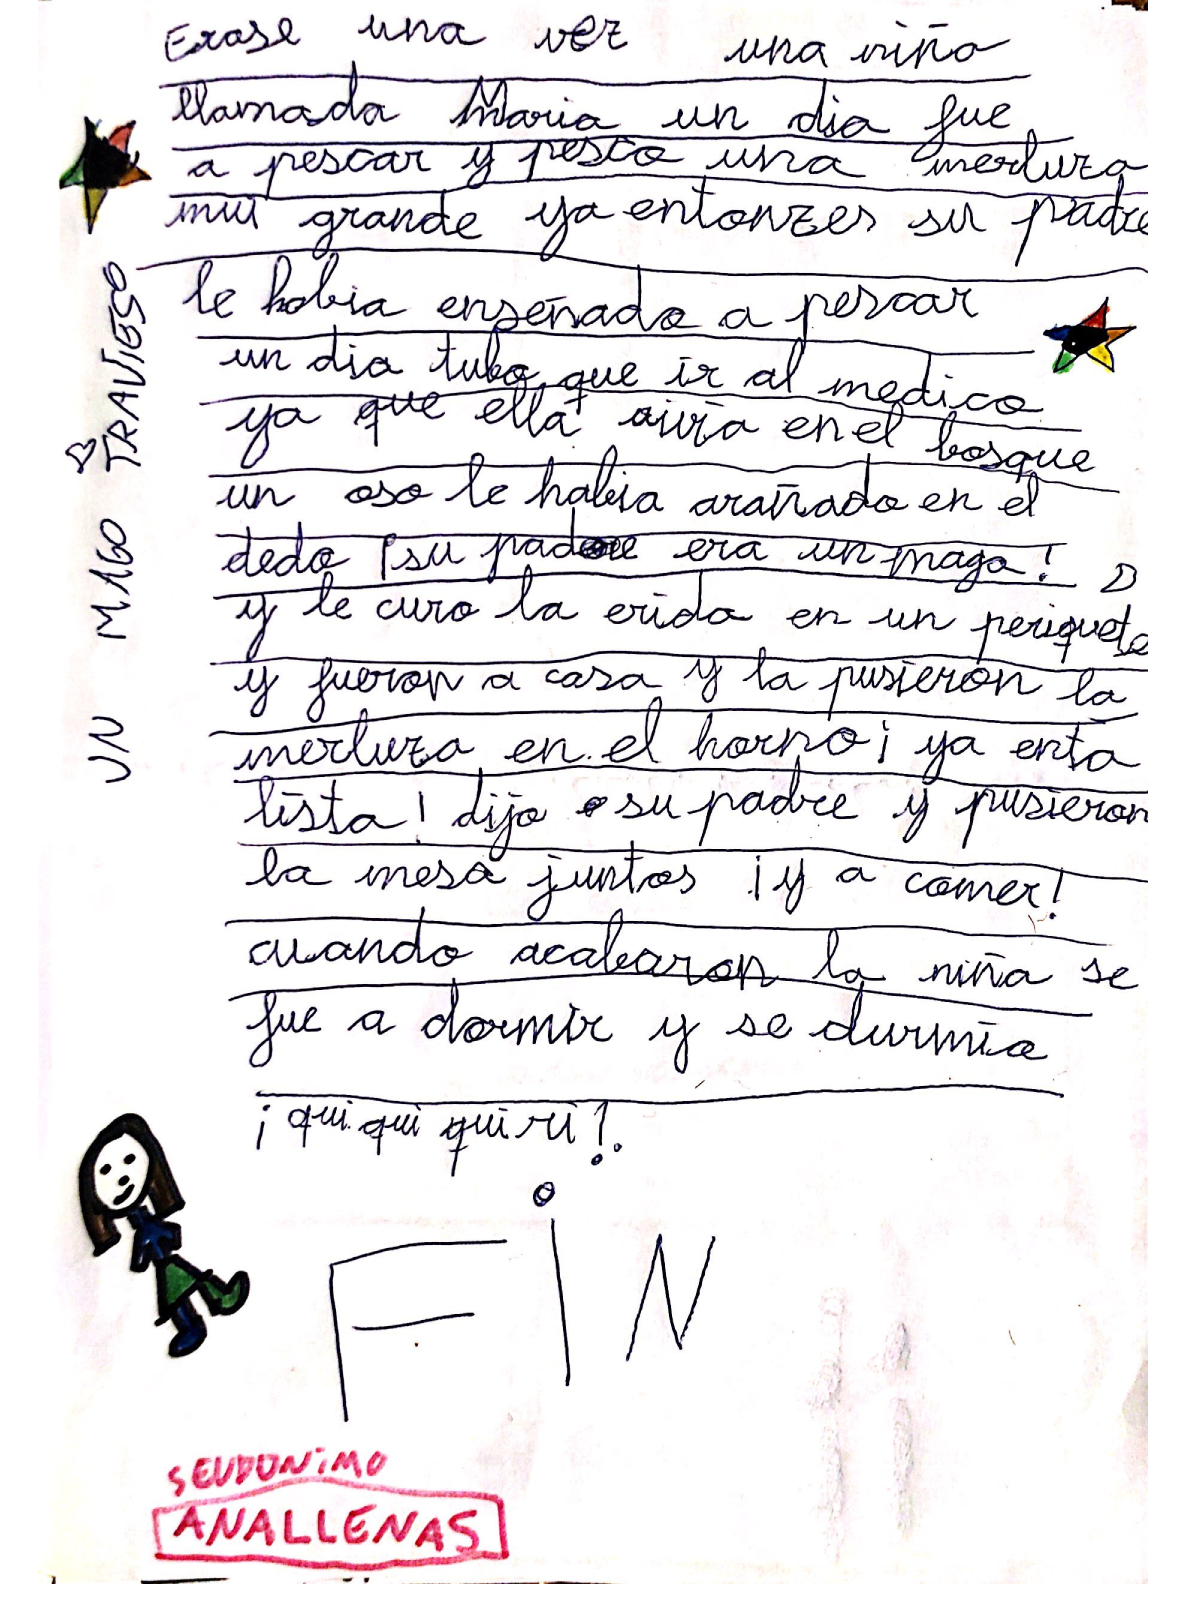 Erase una vez una niña
llamada Maria un dia fue
a pescar y pesco una merluza
mui grande ya entonzes su padre
le habia enseñado a pescar
un dia tubo que ir al medico
ya que ella vivia en el bosque
un oso le habia arañado en el
dedo ¡su padre era un mago!
y le curo la erida en un periquete
y fueron a casa y la pusieron la
merluza en el horno ¡ ya enta
lista! dijo su padre y pusieron
la mesa juntos ¡y a comer!
cuando acabaron la niña se
fue a dormir y se durmio
¡qui qui qui ri!.
FiN
UN MAGO TRAVIESO
SEUDONiMO
ANALLENAS